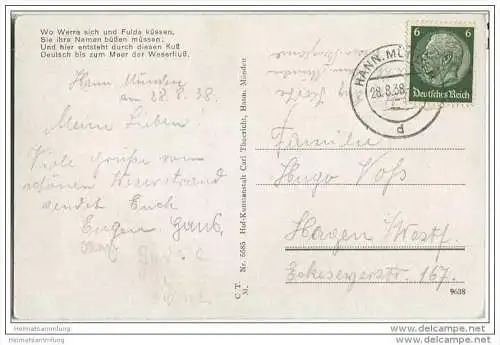 Wo Werra sich und Fulda küssen,
Sie ihre Namen büßen müssen;
Und hier entsteht durch diesen Kuß
Deutsch bis zum Meer der Weserfluß.
Hann. Münden
am 28.8.38.
Meine Lieben!
Viele Grüße vom
schönen Weserstrand
sendet Euch
Eugen
C. T. M.
Nr. 6685 Hof-Kunstanstalt Carl Thoericht, Hann. Münden
6 6
Deutsches Reich
HANN. MÜN
28.8.38
d
Familie
Hugo Voß
Hagen Westf.
Eckeseyerstr. 167.
9638
Heimatsammlung
Heimatsammlung